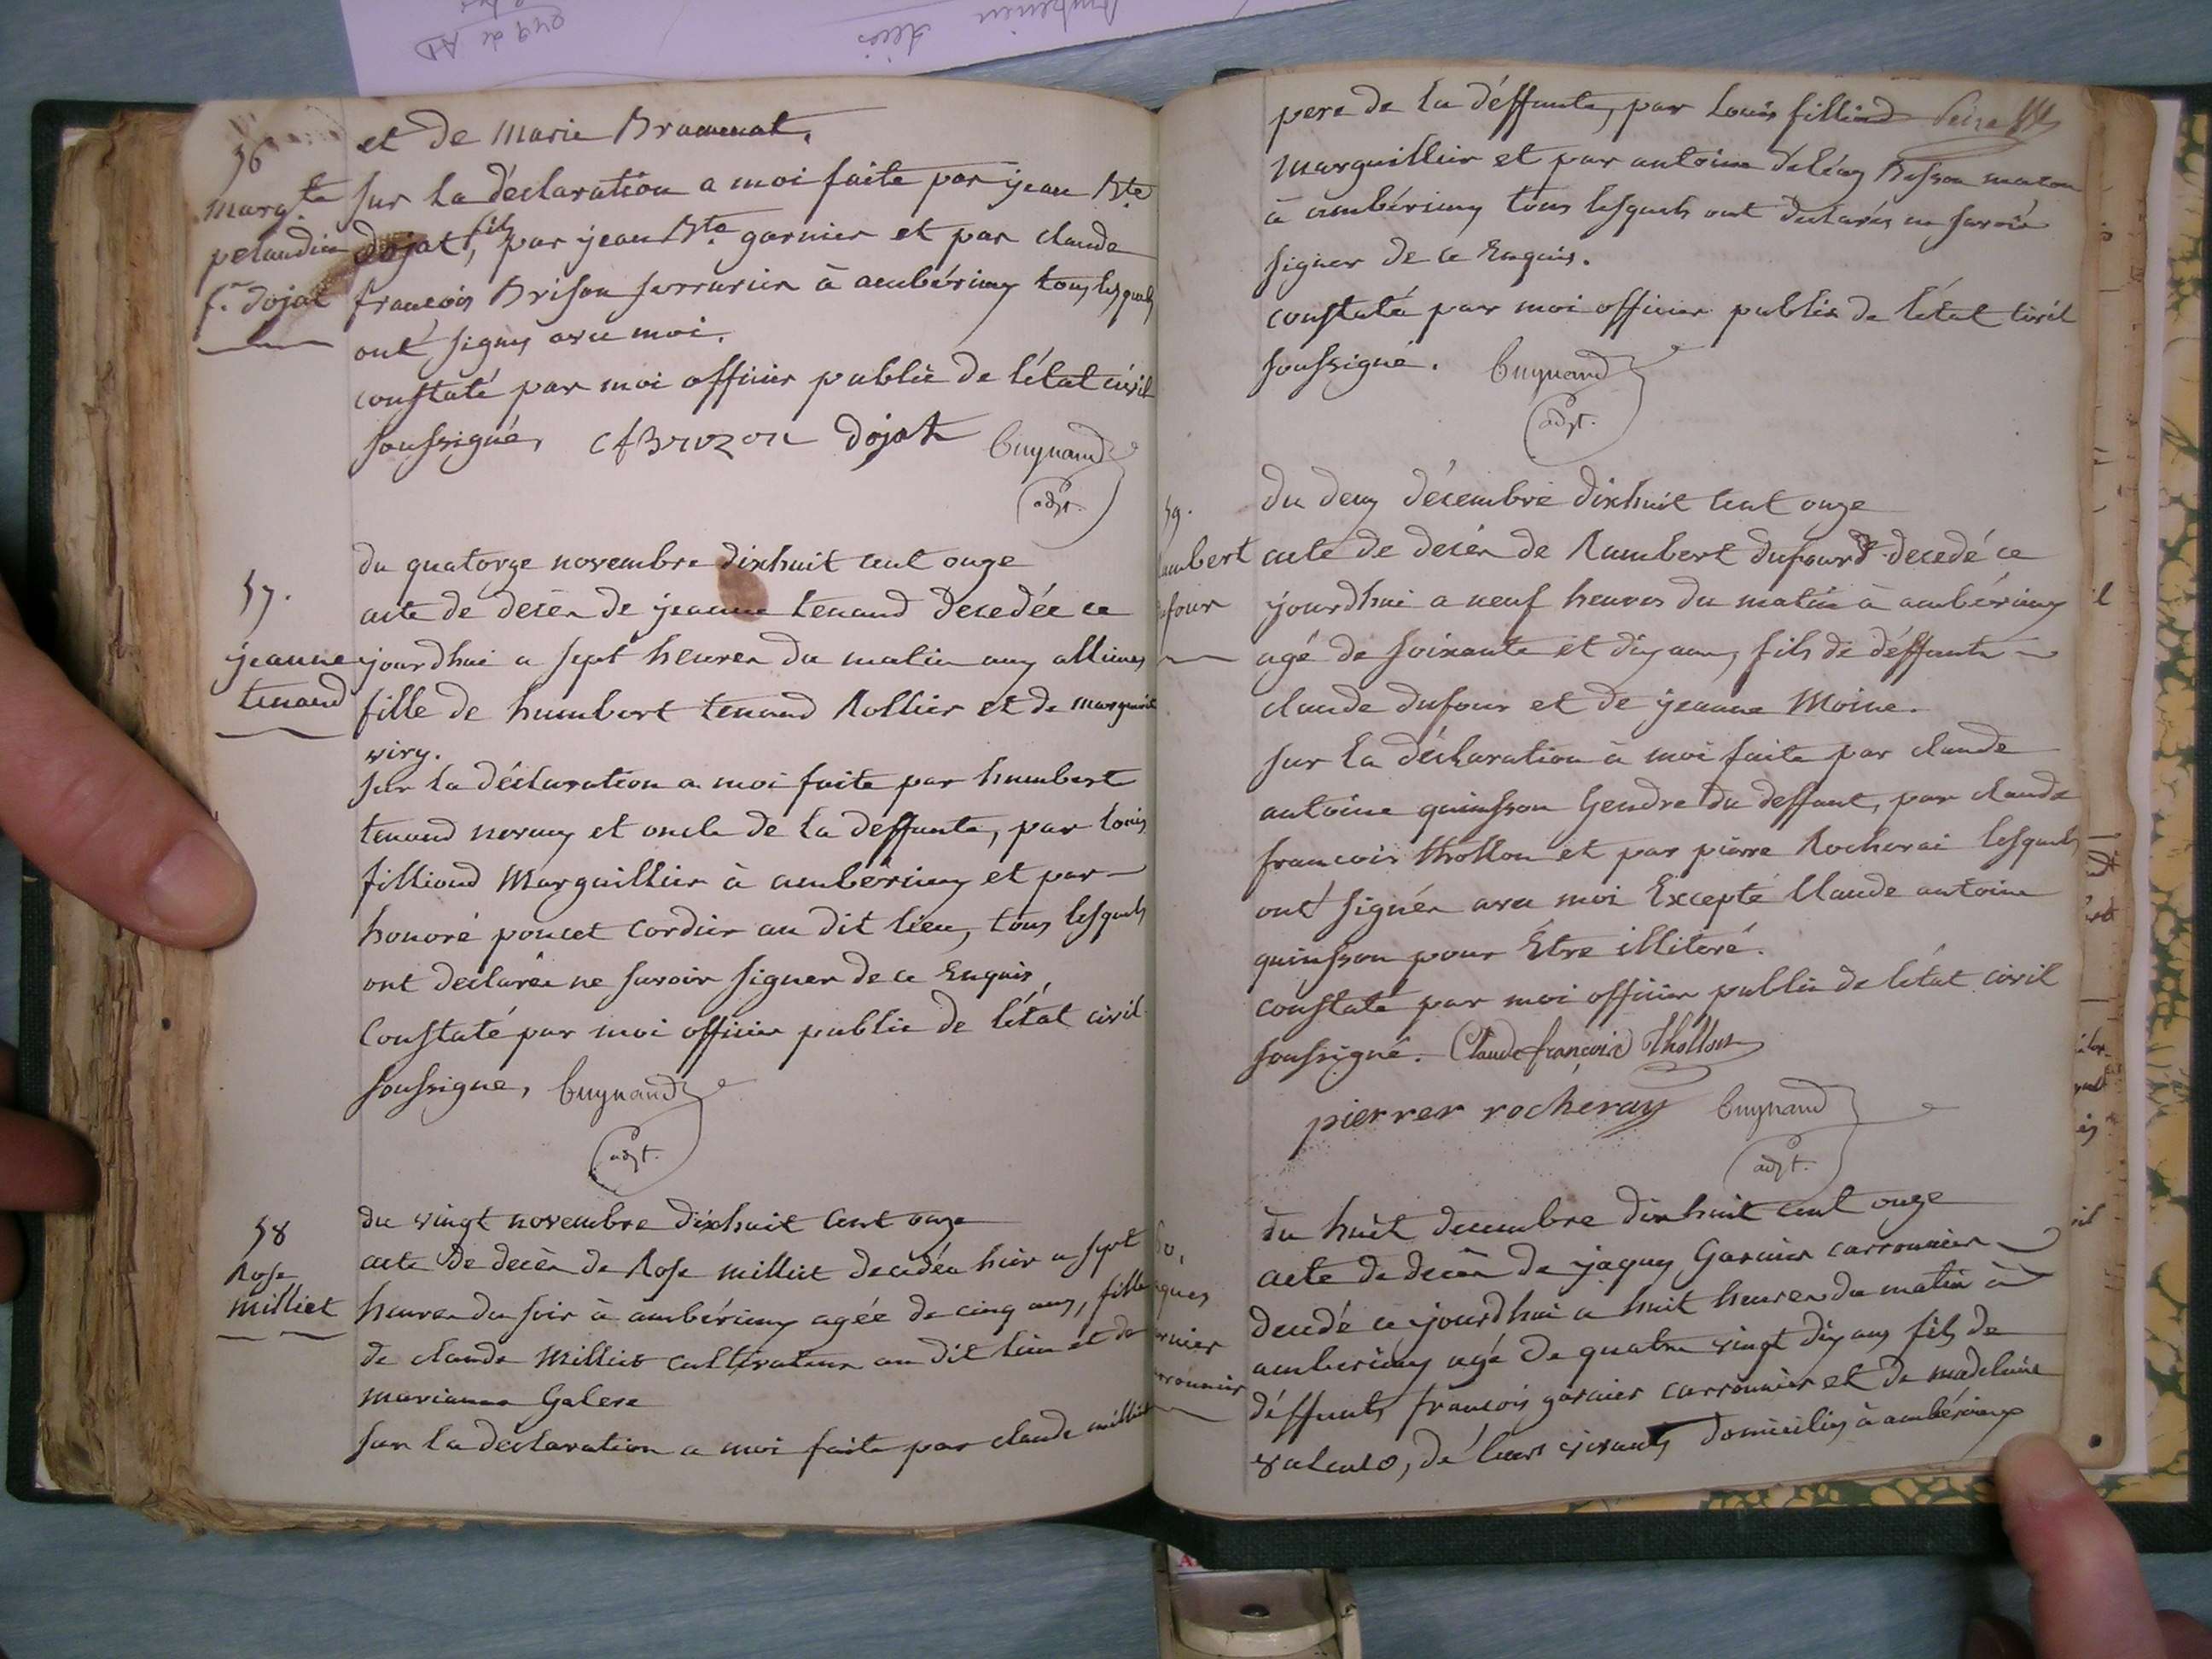 56
marg.te
pelaudin
f.e dojat
et de marie Bramerat.
sur la déclaration a moi faite par jean Bte
dojat fils, par jean Bte garnier et par claude
francois Brison serrurier à ambérieux tous lesquels
ont signes avec moi.
constaté par moi officier public de l'état civil
soussigné, CfBruzon Dojat Cuynand
adjt.
57.
jeanne
tenand
du quatorze novembre dixhuit cent onze
acte de décèr de jeanne tenand décedée ce
jourdhui a sept heures du matin aux allimes
fille de humbert tenand Rollier et de marguerite
viry.
sur la déclaration a moi faite par humbert
tenand et oncle de la deffunte, par louis
filliond Marguillier à ambérieux et par
honoré poncet cordier au dit lieu, tous lesquels
ont declarér ne savoir signer de ce Enquis,
Constaté par moi officier public de l'état civil
soussigne, Cuynand
adjt.
58
Rose
milliet
du vingt novembre dixhuit cent onze
acte de décèr de Rose milliet decédée hier a sept
heures du soir à ambérieux agée de cinq ans, fille
de claude Milliet cultivateur au dit lieu et de
marianne Galere
sur la déclaration a moi faite par claude milliet
pere de la déffunte, par Louis filliond
marguillier et par antoine Besson macon
à ambérieux tous lesquels ont declarés ne savoir
signer de ce Enquis.
constaté par moi officier public de l'état civil
soussigné. Cuynand
adjt.
59.
ambert
ufour
du deux décembre dixhuit cent onze
acte de décèr de Rambert dufour decedé ce
jourdhui a neuf heures du matin à ambérieux
agé de soixante et dix ans, fils de déffunts
claude dufour et de jeanne Moine.
sur la déclaration à moi faite par claude
antoine quinsson Gendre du deffunt, par claude
francois thollon et par pierre Rocherai lesquels
ont signér avec moi Excepté Claude antoine
quinsson pour Etre illiteré.
constaté par moi officier public de l'état civil
soussigné. Claude françois Thollon
pierrer rocheray Cuynand
adjt.
60.
ques
rnier
rronnier
du huit decembre dixhuit cent onze
acte de décèr de jaques Garnier carronnier
decédé ce jourdhui a huit heures du matin à
amberieux agé de quatre vingt dix ans fils de
déffunts françois garnier carronnier et de madelaine
, de leurs vivants domiciliés à ambérieux